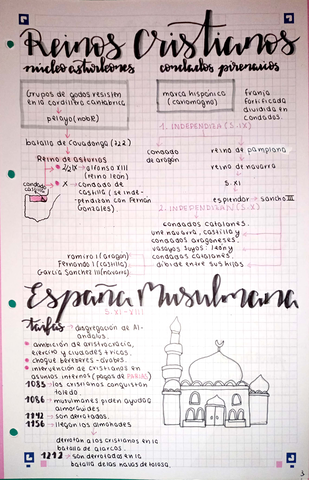 Reinos Cristianos
núcleo asturleones
condados pirenaicos
Grupos de godos resisten
en la cordillera cantábrica
pelayo (noble)
batalla de Covadonga (722)
Reino de asturias
alfonso XIII
(reino león)
X → condado de
castilla (se inde-
pendizan con Fernán
González)
condado
castilla
marca hispánica
(carlomagno)
franja
fortificada
dividida en
condados.
1. INDEPENDIZA (S. IX)
condado
de aragón
reino de pamplona
reino de navarra
S. XI
esplendor → sancho III
2. INDEPENDIZA (S. X)
condados catalanes
une navarra, castilla y
condados aragoneses,
vasallos suyos: león y
condados catalanes.
divide entre sus hijos
ramiro I (aragón)
Fernando I (castilla)
García Sanchez III (navarra)
España Musulmana
S. XI - XIII
taifas → disgregación de Al-
andalus.
ambición de aristocracia,
ejército y ciudades ricas.
choque bereberes - árabes.
intervención de cristianos en
asuntos internos (pagos de PARIAS)
1085 → los cristianos conquistan
toledo.
1086 → musulmanes piden ayuda
almorávides
1142 → son derrotados.
1156 → llegan los almohades
derrotan a los cristianos en la
batalla de alarcos.
1212 → son derrotados en la
batalla de las navas de tolosa.